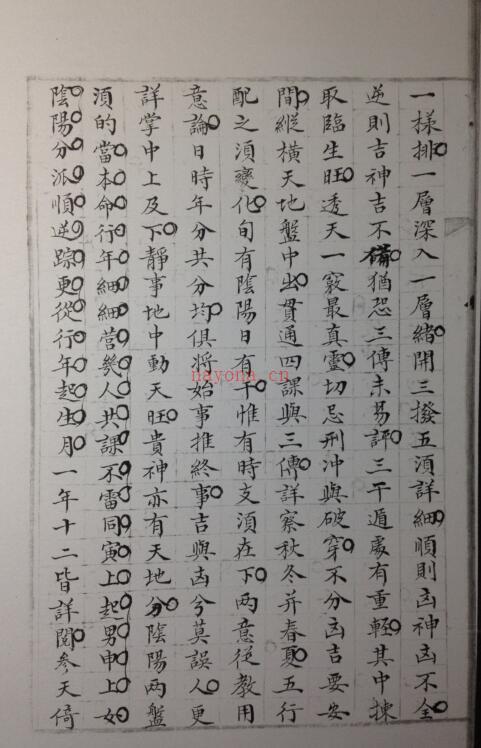 一樣排一層深入一層緒開三撥五須詳細順則凶神凶不全
逆則吉神吉不備猶恐三傳未易評三干遁處有重輕其中揀
取臨生旺透天一竅最真靈切忌刑沖與破穿不分凶吉要安
間縱橫天地盤中出貫通四課與三傳詳察秋冬并春夏五行
配之須變化旬有陰陽日有干惟有時支須在下兩意從教用
意論日時年分共分均俱將始事推終事吉與凶兮莫誤人更
詳掌中上及下靜事地中動天旺貴神亦有天地分陰陽兩盤
須的當本命行年細細營幾人共課不雷同寅上起男申上女
陰陽分派順逆踪更從行年起生月一年十二皆詳閱參天倚
nayona.cn